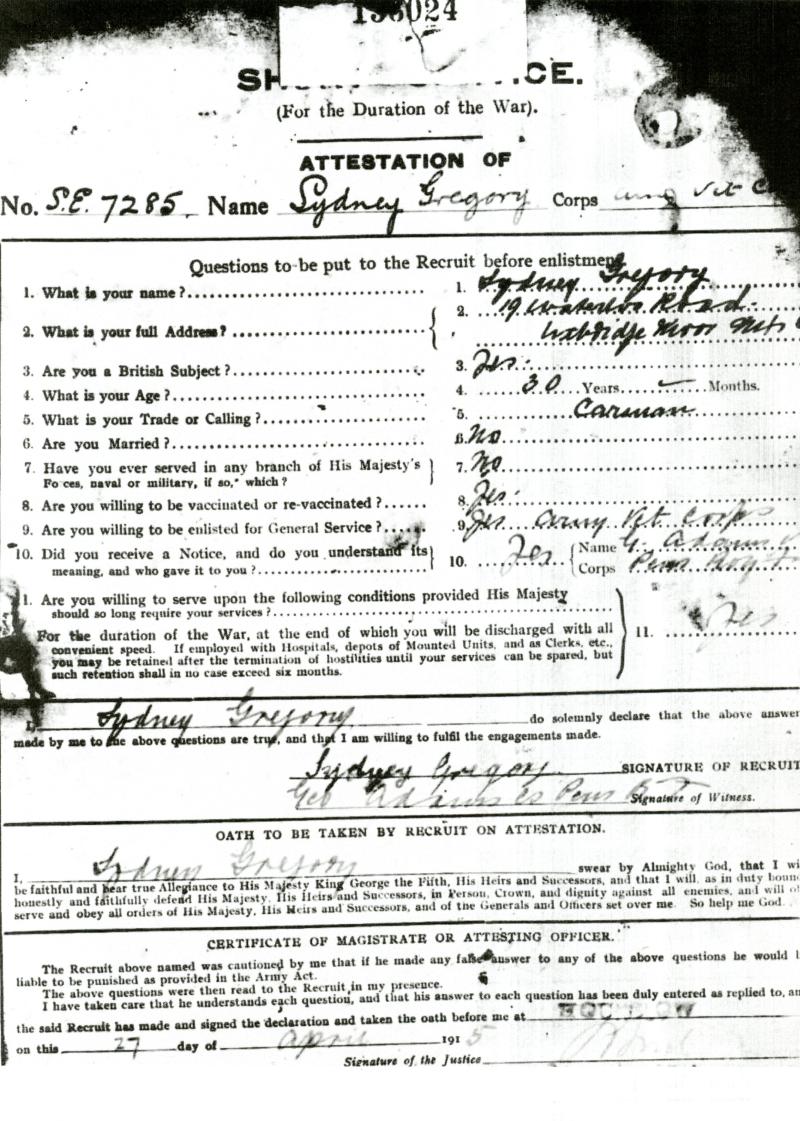 SH
CE.
(For the Duration of the War).
ATTESTATION OF
No. S.E. 7285. Name Sydney Gregory Corps Army Vet C
Questions to be put to the Recruit before enlistment.
1. What is your name? 1. Sydney Gregory
2. What is your full Address? 2. 19 Waterloo Road.
Uxbridge Moor
3. Are you a British Subject? 3. Yes.
4. What is your Age? 4. 30 Years Months.
5. What is your Trade or Calling? 5. Carman
6. Are you Married? 6. No
7. Have you ever served in any branch of His Majesty's
Fo ces, naval or military, if so,* which? 7. No
8. Are you willing to be vaccinated or re-vaccinated? 8. Yes.
9. Are you willing to be enlisted for General Service? 9. Yes Army Vet Corps
10. Did you receive a Notice, and do you understand its
meaning, and who gave it to you? 10. Yes { Name G. Adams
Corps
1. Are you willing to serve upon the following conditions provided His Majesty
should so long require your services?
For the duration of the War, at the end of which you will be discharged with all
convenient speed. If employed with Hospitals, depots of Mounted Units, and as Clerks, etc.,
you may be retained after the termination of hostilities until your services can be spared, but
such retention shall in no case exceed six months.
11. Yes
I, Sydney Gregory do solemnly declare that the above answer
made by me to the above questions are true, and that I am willing to fulfil the engagements made.
Sydney Gregory SIGNATURE OF RECRUIT
Geo Adams Signature of Witness.
OATH TO BE TAKEN BY RECRUIT ON ATTESTATION.
I, Sydney Gregory swear by Almighty God, that I wi
be faithful and bear true Allegiance to His Majesty King George the Fifth, His Heirs and Successors, and that I will, as in duty boun
honestly and faithfully defend His Majesty, His Heirs and Successors, in Person, Crown, and dignity against all enemies, and will o
serve and obey all orders of His Majesty, His Heirs and Successors, and of the Generals and Officers set over me. So help me God.
CERTIFICATE OF MAGISTRATE OR ATTESTING OFFICER.
The Recruit above named was cautioned by me that if he made any false answer to any of the above questions he would b
liable to be punished as provided in the Army Act.
The above questions were then read to the Recruit in my presence.
I have taken care that he understands each question, and that his answer to each question has been duly entered as replied to, an
the said Recruit has made and signed the declaration and taken the oath before me at HOUNSLOW
on this 27 day of April 1915
Signature of the Justice